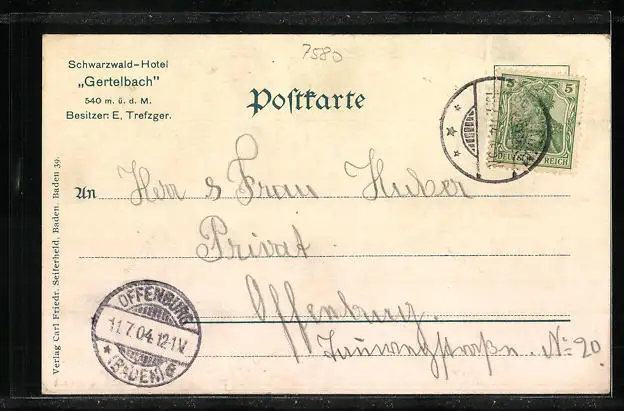 7580
Schwarzwald-Hotel
„Gertelbach"
540 m. ü. d. M.
Besitzer: E. Trefzger.
Postkarte
5 5
DEUTSCHES REICH
An Herr & Frau Huber
Privat
Offenburg.
No 20
OFFENBURG
11.7.04.12-1V
* (BADEN) *
Verlag Carl Friedr. Seiferheld, Baden-Baden 39.